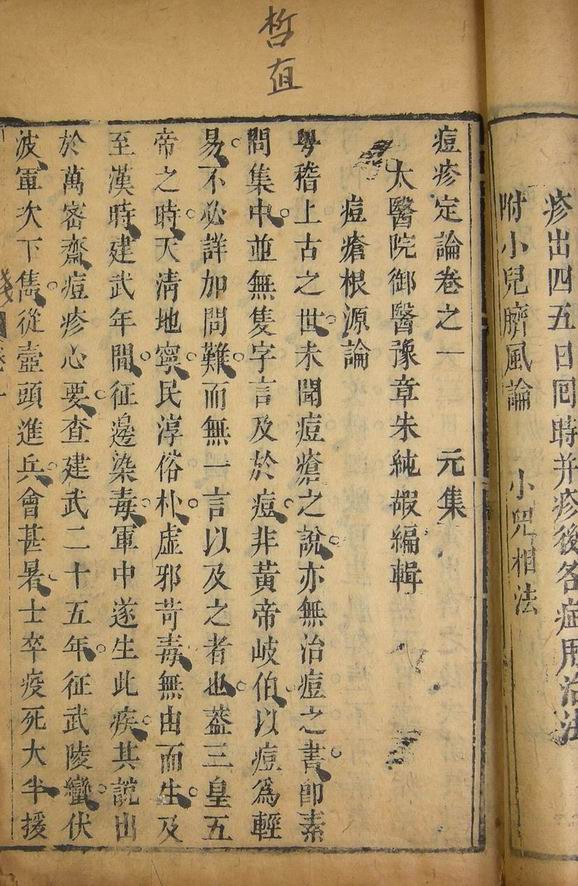 疹出四五日同時并疹後各症用治法
附小兒臍風論 小兒相法
痘疹定論卷之一 元集
太醫院御醫豫章朱純嘏編輯
痘瘡根源論
粵稽上古之世未聞痘瘡之說亦無治痘之書即素
問集中並無隻字言及於痘非黃帝岐伯以痘爲輕
易不必詳加問難而無一言以及之者也葢三皇五
帝之時天清地寧民淳俗朴虛邪苛毒無由而生及
至漢時建武年間征邊染毒軍中遂生此疾其說出
於萬密齋痘疹心要查建武二十五年征武陵蠻伏
波軍次下雋從壺頭進兵會甚暑士卒疫死大半援